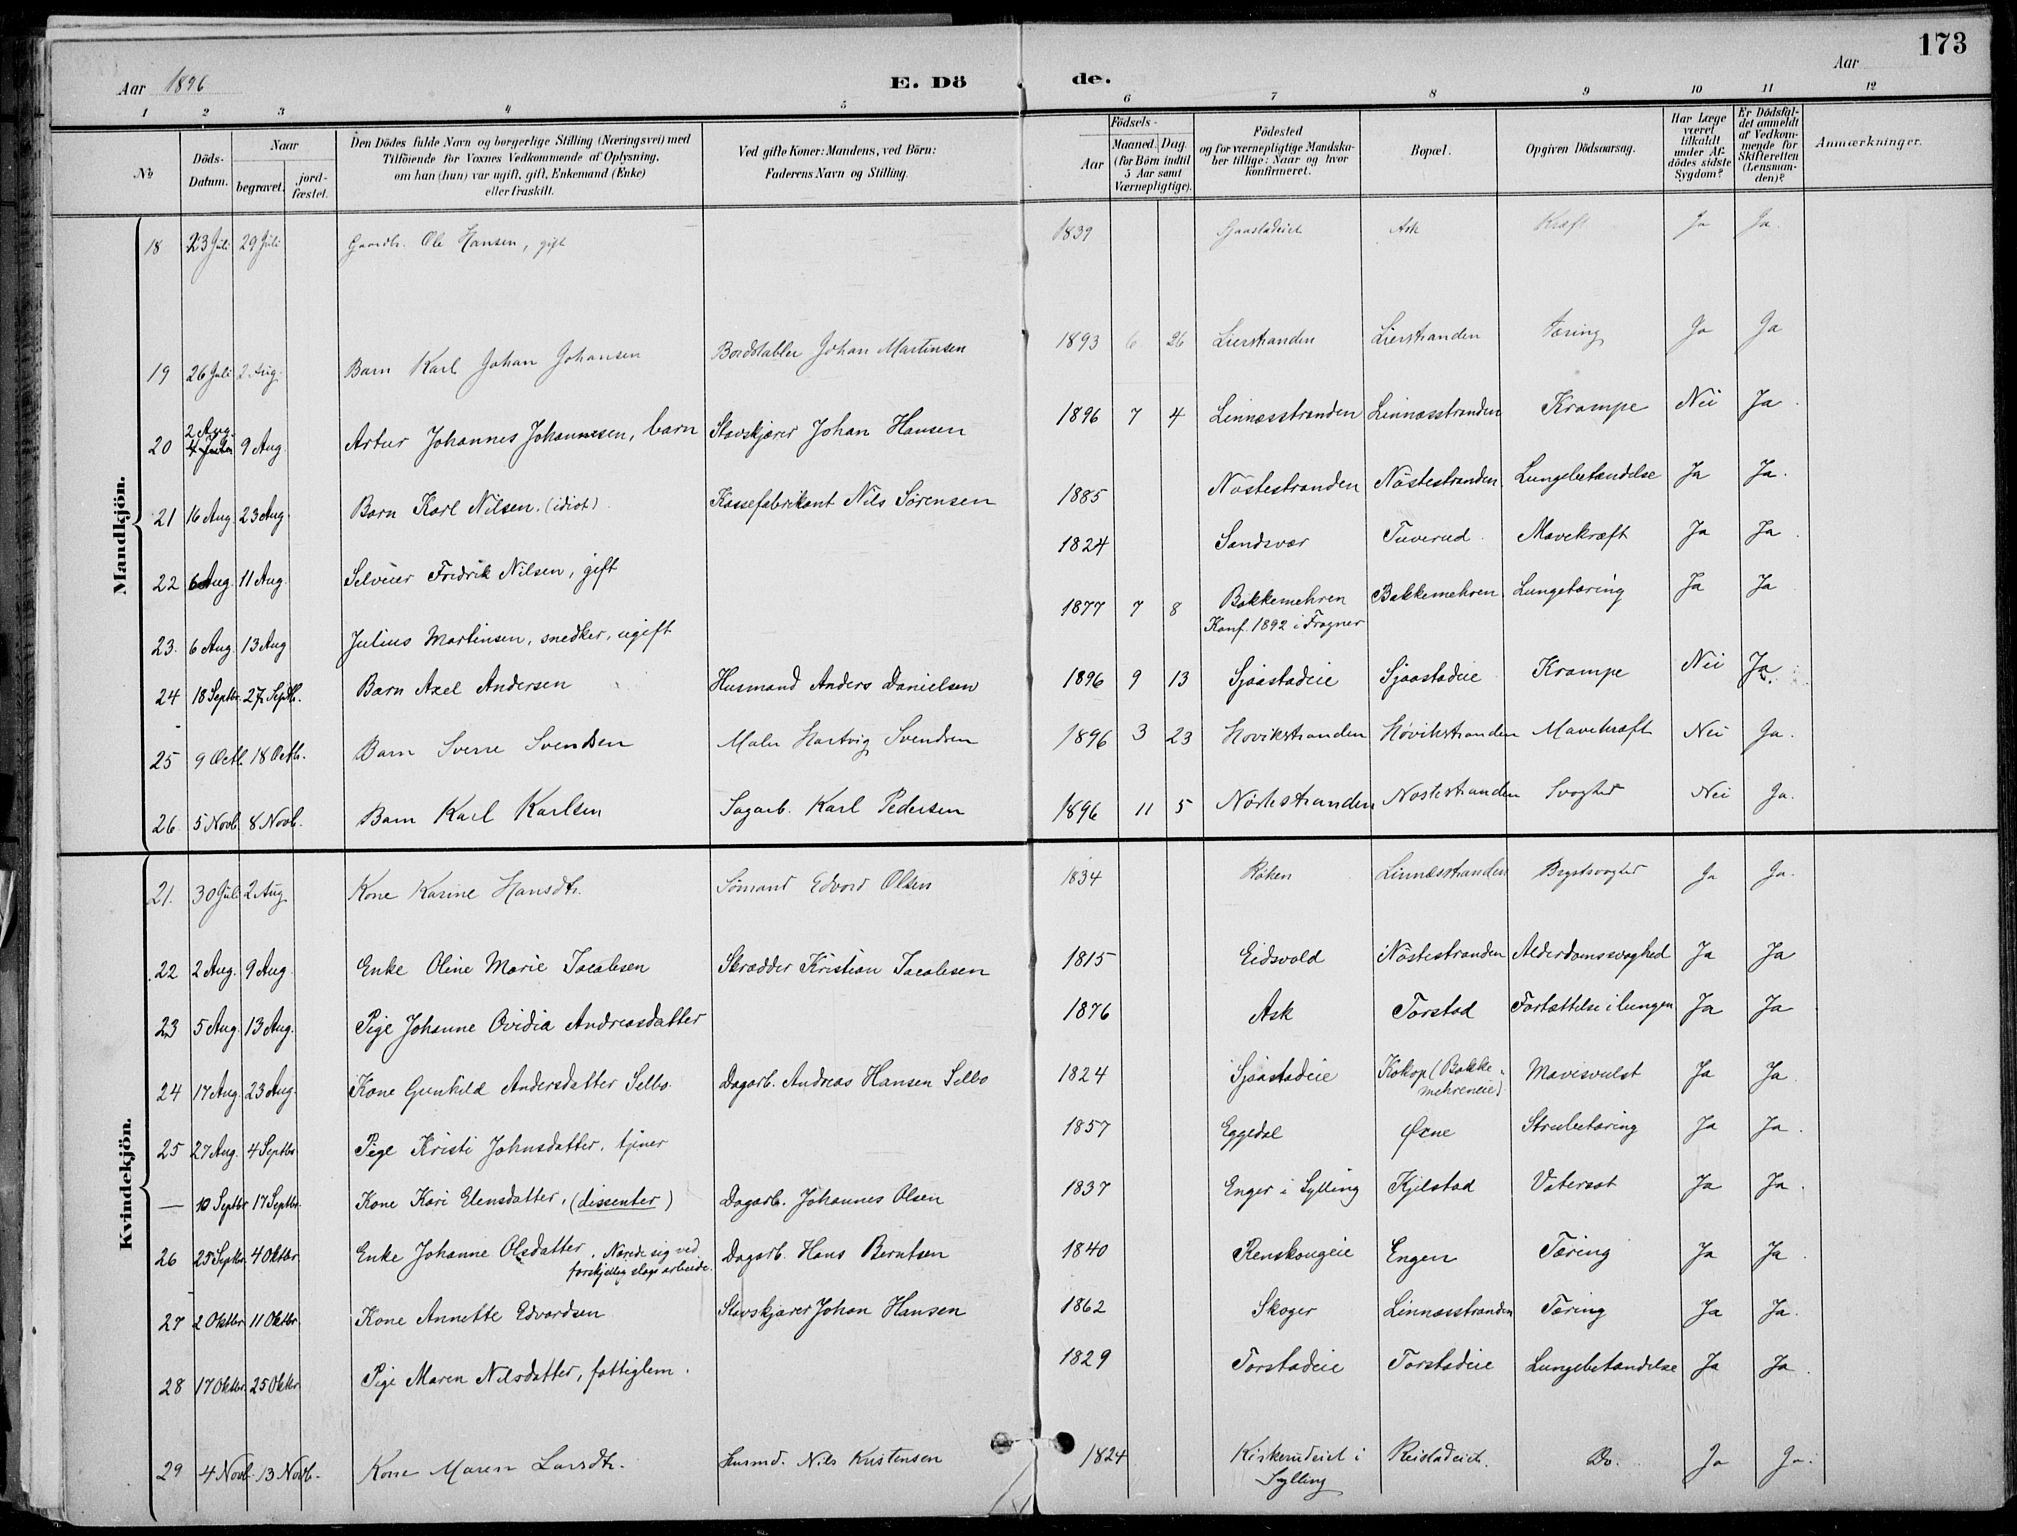 173
Aar 1896 E. Dö de. Aar
1 2 3 4 5 6 7 8 9 10 11 12
No
Döds-Datum.
Naar
begravet.
jord-fæstet.
Den Dödes fulde Navn og borgerlige Stilling (Næringsvei) med
Tilföiende for Voxnes Vedkommende af Oplysning,
om han (hun) var ugift, gift, Enkemand (Enke)
eller fraskilt.
Ved gifte Koner: Mandens, ved Börn:
Faderens Navn og Stilling.
Födsels-
Aar
Maaned. Dag.
(for Börn indtil
5 Aar samt
Værnepligtige).
Födested
og for værnepligtige Mandska-
ber tillige: Naar og hvor
konfirmeret.
Bopæl.
Opgiven Dödsaarsag.
Har Læge
været
tilkaldt
under Af-
dödes sidste
Sygdom?
Er Dödsfal-
det anmeldt
af Vedkom-
mende for
Skifteretten
(Lensman-
den)?
Anmærkninger.
Mandkjön.
18 23 Juli 29 Juli Gaardb. Ole Hansen, gift 1839 Sjaastadeiet Ask Kræft Ja Ja.
19 26 Juli 2 Aug. Barn Karl Johan Johansen Bordstabler Johan Martinsen 1893 6 26 Lierstranden Lierstranden Tæring Ja Ja
20 2 Aug. 9 Aug. Artur Johannes Johannesen, barn Stavskjærer Johan Hansen 1896 7 4 Linnæsstranden Linnæsstranden Krampe Nei Ja.
21 16 Aug. 23 Aug. Barn Karl Nilsen. (idiot) Kassefabrikant Nils Sørensen 1885 Nøstestranden Nøstestranden Lungebetændelse Ja Ja.
22 6 Aug. 11 Aug. Selveier Fredrik Nilsen, gift 1824 Sandsvær Tuverud Mavekræft Ja Ja.
23. 6 Aug. 13 Aug Julius Martinsen, snedker, ugift 1877 7 8 Bakkemehren
Konf. 1892 i Frogner Bakkemehren Lungetæring Ja Ja
24 18 Septbr. 27 Septb. Barn Axel Andersen Husmand Anders Danielsen 1896 9 13 Sjaastadeie Sjaastadeie Krampe Nei Ja.
25 9 Octb. 18 Octb. Barn Sverre Svendsen Maler Hartvig Svendsen 1896 3 23 Høvikstranden Høvikstranden Mavekræft Nei Ja.
26. 5 Novb. 8 Novb. Barn Karl Karlsen Sagarb. Karl Pedersen 1896 11 5 Nøstestranden Nøstestranden Svaghed Nei Ja.
Kvindekjön.
21. 30 Juli 2 Aug. Kone Karine Hansdtr. Sømand Edvard Olsen 1834 Røken Linnæsstranden Brystsvaghed Ja Ja.
22 2 Aug. 9 Aug. Enke Oline Marie Jacobsen Skrædder Kristian Jacobsen 1815 Eidsvold Nøstestranden Alderdomssvaghed Ja Ja
23 5 Aug. 13 Aug. Pige Johanne Ovidia Andreasdatter 1876 Ask Torstad Fortættelse i lungen Ja Ja
24 17 Aug. 23 Aug. Kone Gunhild Andersdatter Selbo Dagarb. Andreas Hansen Selbo 1824 Sjaastadeie Kokop (Bakke-
mehreneie) Mavesvulst Ja Ja.
25 27 Aug. 4 Septbr Pige Kristi Johnsdatter, tjener 1857 Eggedal Øxne Strubetæring Ja Ja.
— 10 Septbr 17 Septbr. Kone Kari Elensdatter, (dissenter) Dagarb. Johannes Olsen 1837 Enger i Sylling Kjelstad Vatersot Ja Ja.
26 25 Septbr. 4 Oktbr Enke Johanne Olsdatter. Nærede sig ved
forskjellig slags arbeide. Dagarb. Hans Berntsen 1840 Renskougeie Engen Tæring Ja Ja.
27 2 Oktbr 11 Oktbr Kone Annette Edvardsen Stavskjærer Johan Hansen 1862 Skoger Linnæsstranden Tæring Ja Ja.
28 17 Oktbr. 25 Oktbr Pige Maren Nilsdatter, fattiglem. 1829 Torstadeie Torstadeie Lungebetændelse Ja Ja.
29 4 Novb. 13 Novb. Kone Maren Larsdtr. Husmd. Nils Kristensen 1824 Kirkerudeiet i
Sylling Reistadeiet. Do. Ja Ja.